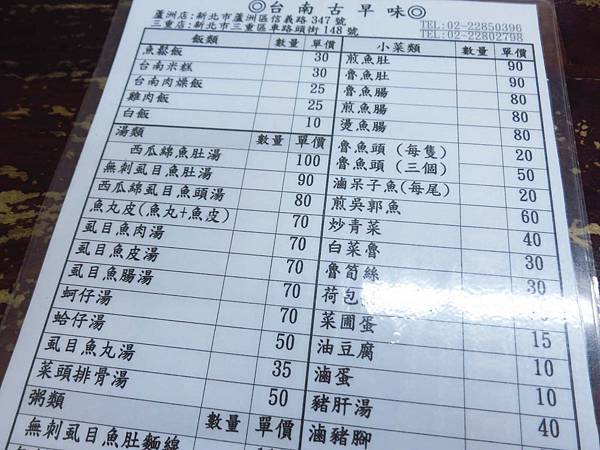 ◎台南古早味◎
蘆洲店:新北市蘆洲區信義路347號 TEL:02-22850396
三重店:新北市三重區車路頭街148號 TEL:02-22802798
飯類 數量 單價
魚鬆飯 30
台南米糕 30
台南肉燥飯 25
雞肉飯 25
白飯 10
湯類 數量 單價
西瓜綿魚肚湯 100
無刺虱目魚肚湯 90
西瓜綿虱目魚頭湯 80
魚丸皮(魚丸+魚皮) 70
虱目魚肉湯 70
虱目魚皮湯 70
虱目魚腸湯 70
蚵仔湯 70
蛤仔湯 50
虱目魚丸湯 35
菜頭排骨湯 50
粥類 數量 單價
無刺虱目魚肚麵線
小菜類 數量 單價
煎魚肚 90
魯魚肚 90
魯魚腸 80
煎魚腸 80
燙魚腸 80
魯魚頭（每隻） 20
魯魚頭（三個） 50
滷呆子魚(每尾) 20
煎吳郭魚 60
炒青菜 40
白菜魯 30
魯筍絲 30
荷包
菜圃蛋 15
油豆腐 10
滷蛋 10
豬肝湯 40
滷豬腳